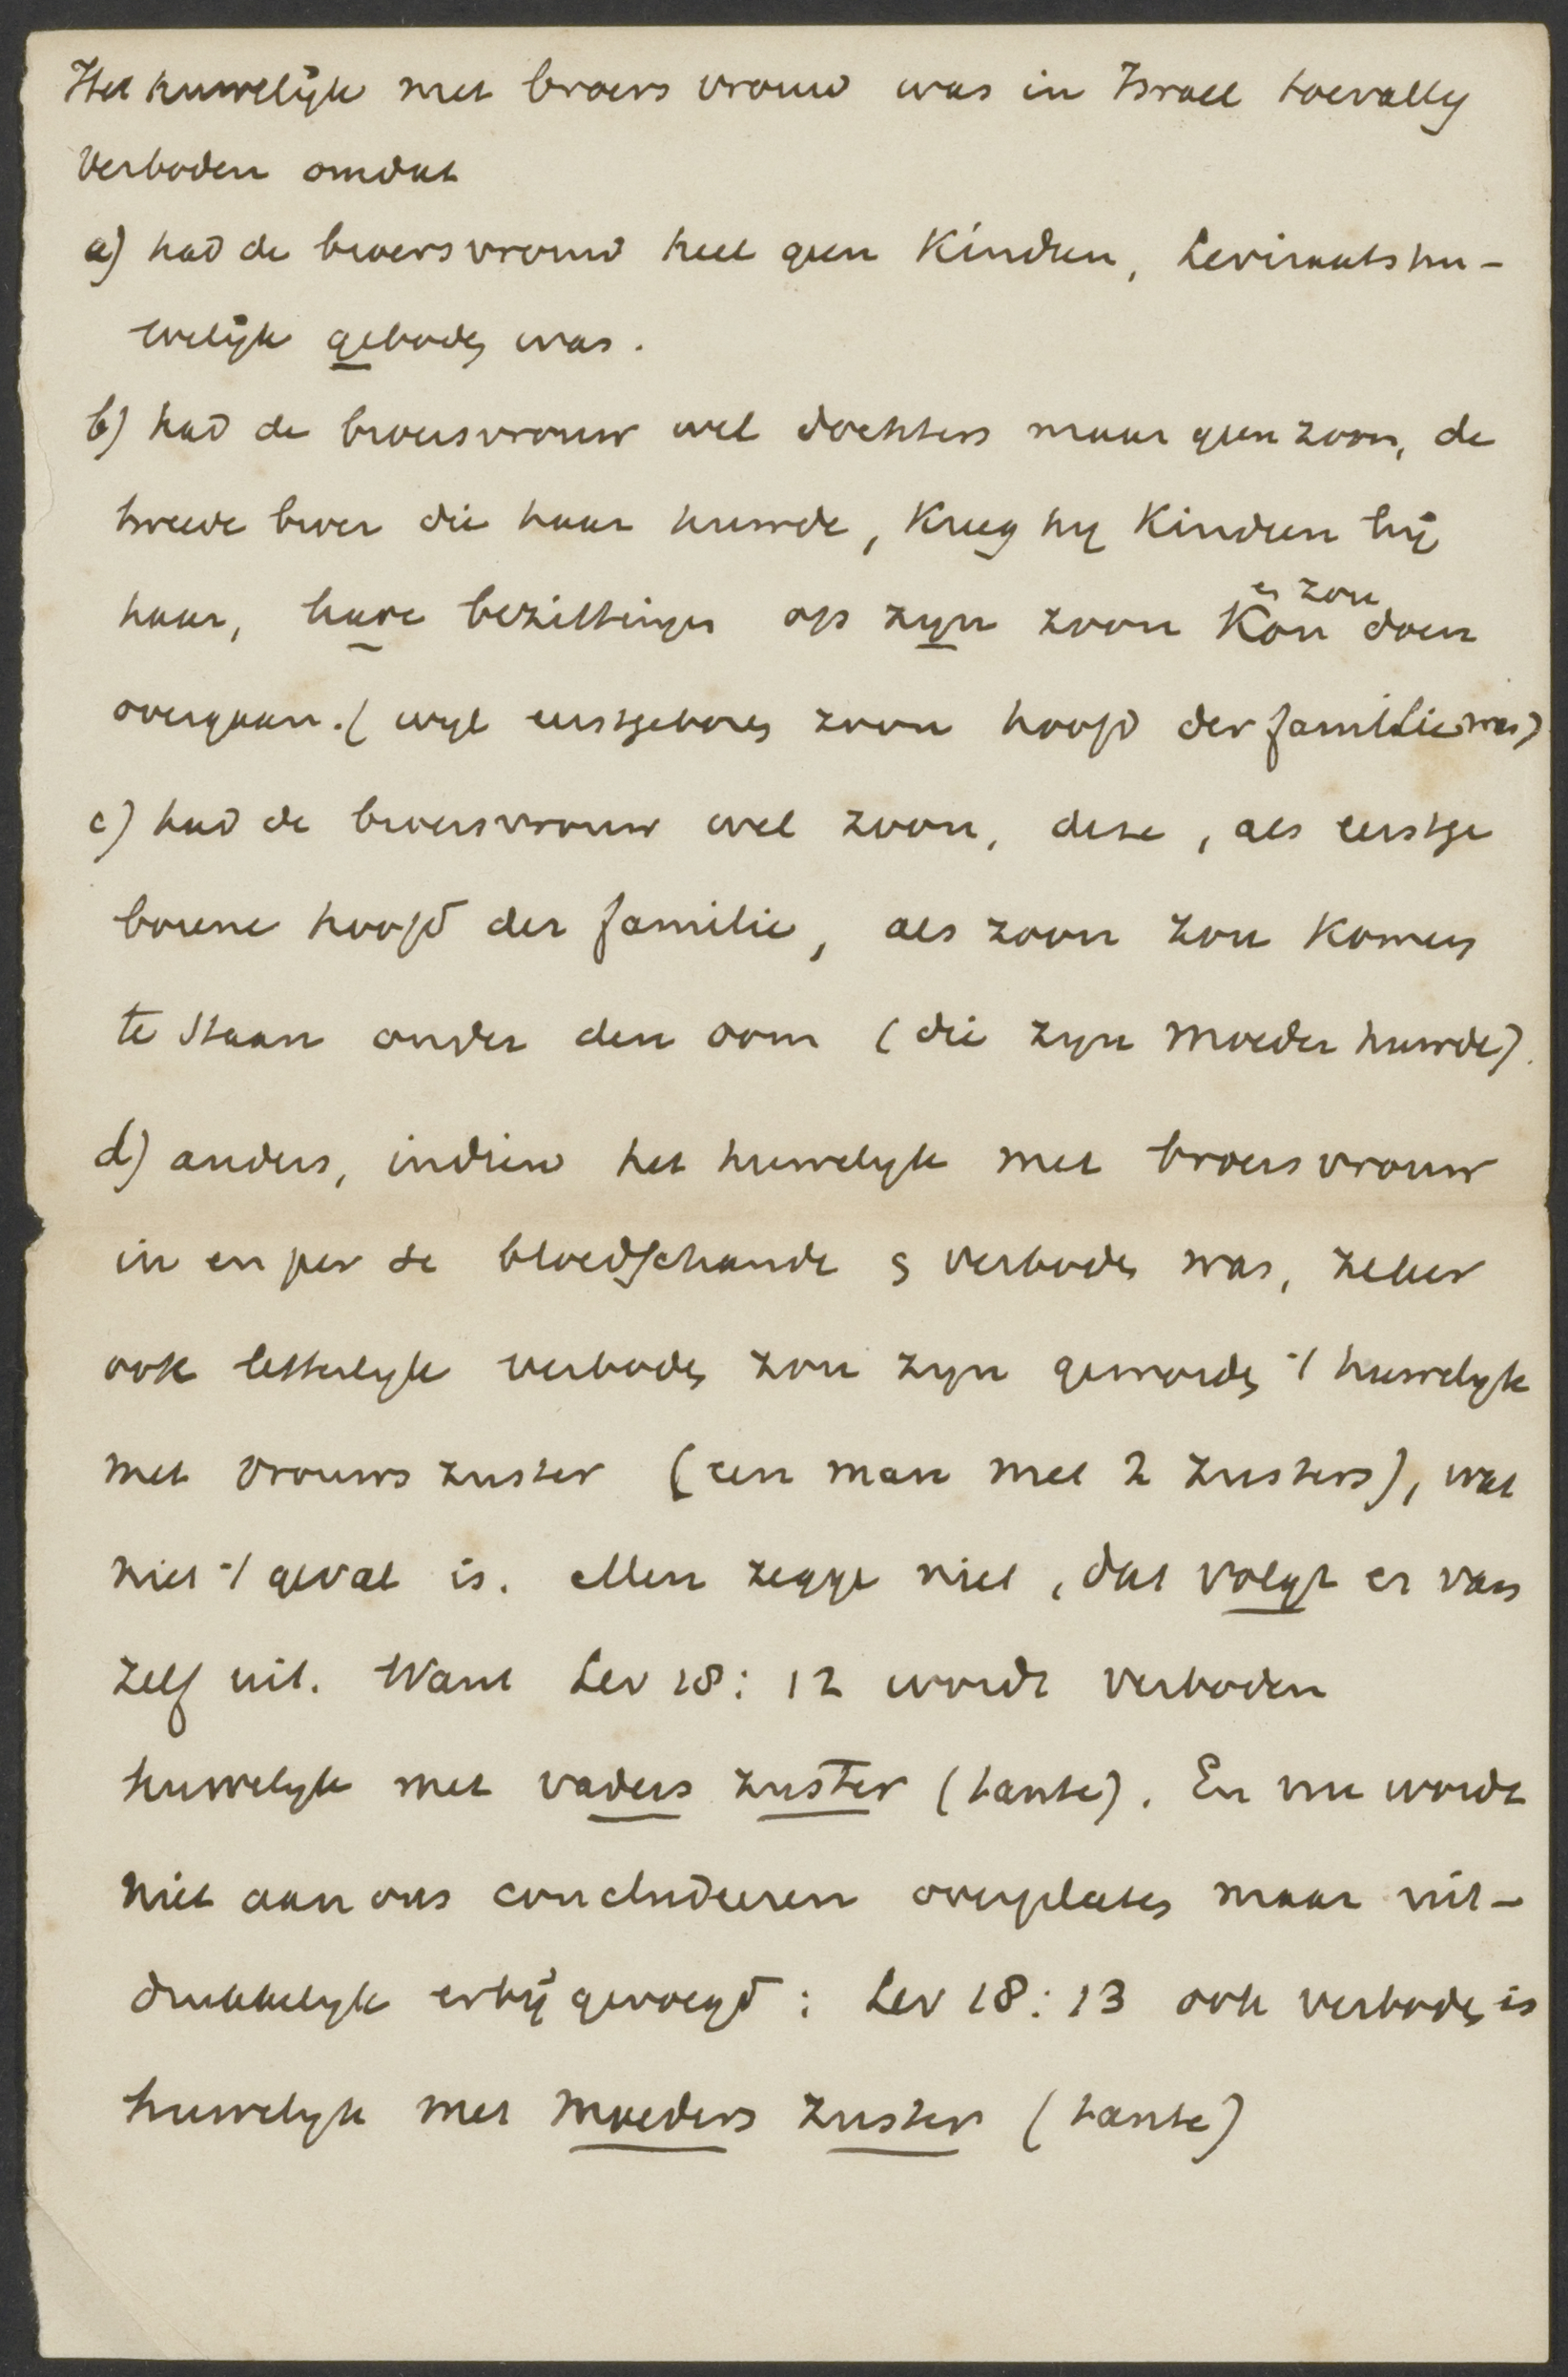 Het huwelijk met broers vrouw was in Israel toevallig
verboden omdat
a) had de broersvrouw heel geen kinderen, Leviraatshu-
welijk geboden was.
b) had de broersvrouw wel dochters maar geen zoon, de
tweede broer die haar huwde, kreeg hij kinderen bij
haar, hare bezittingen op zijn zoon kon doen
en zou
overgaan. (wijl eerstgeboren zoon hoofd der familie was)
c) had de broersvrouw wel zoon, deze, als eerstge
borene hoofd der familie, als zoon zou komen
te staan onder den oom (die zijn moeder huwde).
d) anders, indien het huwelijk met broersvrouw
in en per se bloedschande & verboden was, zeker
ook letterlijk verboden zou zijn geworden 't huwelijk
met vrouws zuster (een man met 2 zusters), wat
niet 't geval is. Men zegge niet, dat volgt er van
zelf uit. Want Lev 18: 12 wordt verboden
huwelijk met vaders zuster (tante). En nu wordt
niet aan ons concludeeren overgelaten maar uit-
drukkelijk erbij gevoegd: Lev 18: 13 ook verboden is
huwelijk met moeders zuster (tante)